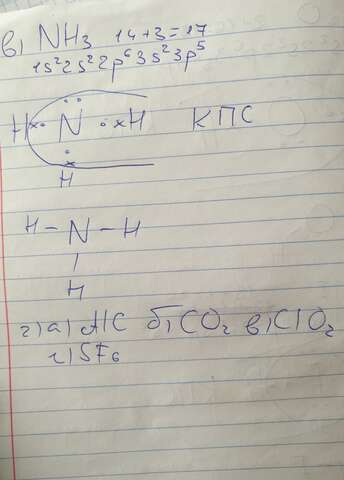 в) NH₃ 14+3=17
1s²2s²2p⁶3s²3p⁵
H N H КПС
H
H-N-H
H
2) а) AlC б) CO₂ в) ClO₂
г) SF₆